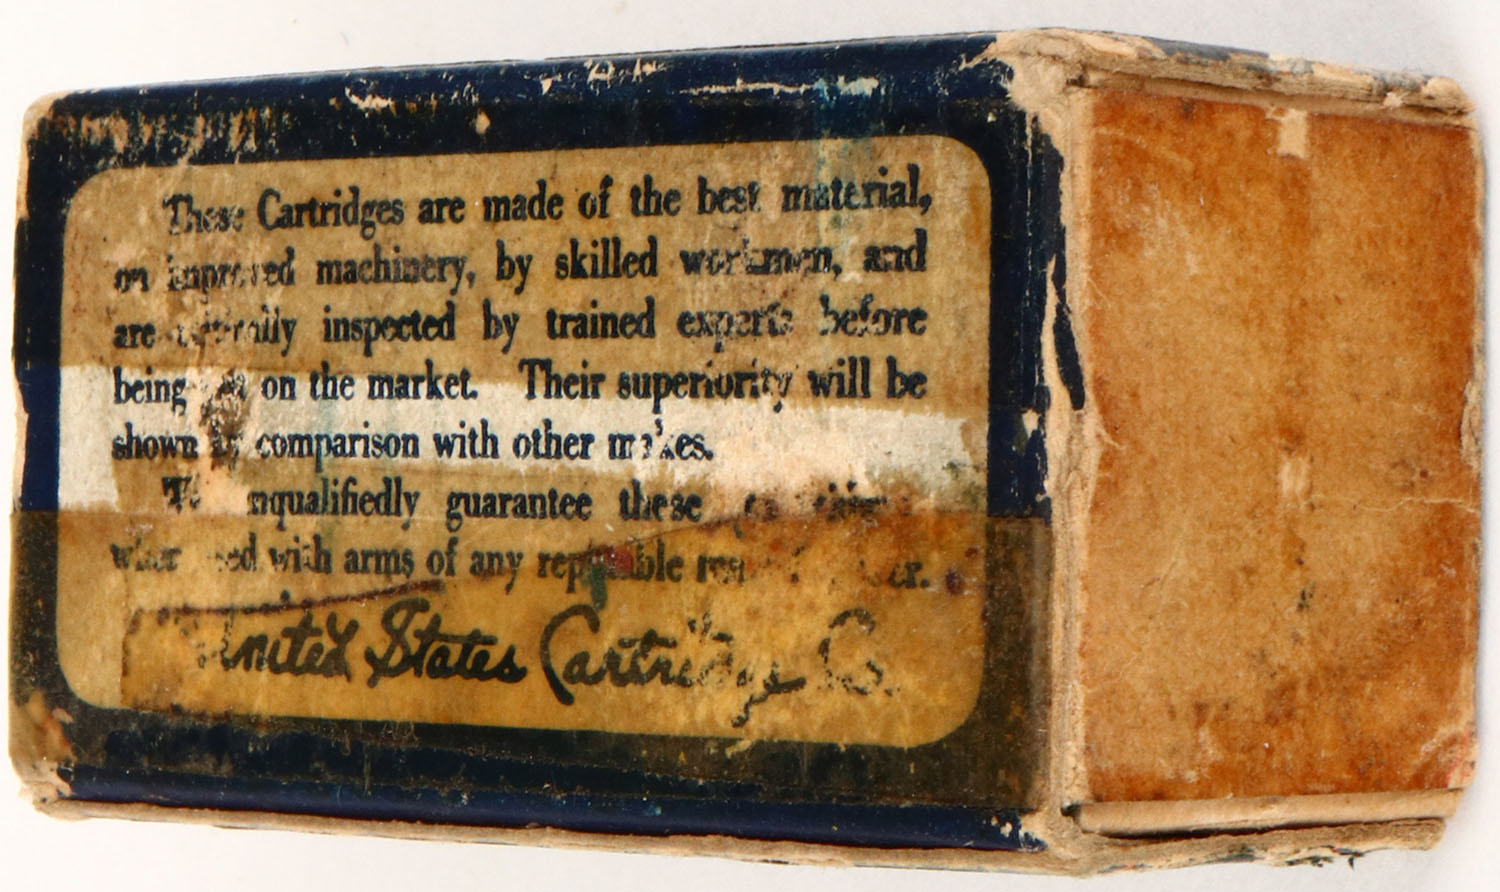 These Cartridges are made of the best material,
on improved machinery, by skilled workmen, and
are inspected by trained experts before
being on the market. Their superiority will be
shown by comparison with other makes.
unqualifiedly guarantee these
with arms of any reputable
United States Cartridge Co.